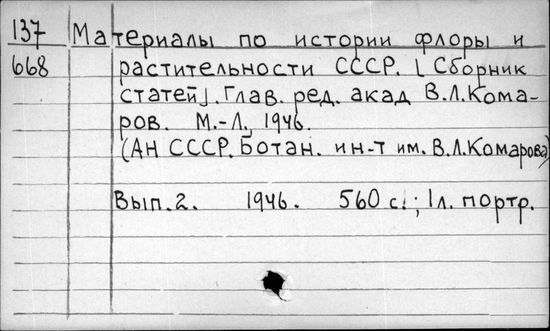 137 Материалы по истории флоры и
668 растительности СССР. [Сборник
статей]. Глав. ред. акад В.Л.Кома-
ров. М.-Л., 1946.
(АН СССР. Ботан. ин-т им. В.Л.Комарова)
Вып. 2. 1946. 560 с.; 1л. портр.